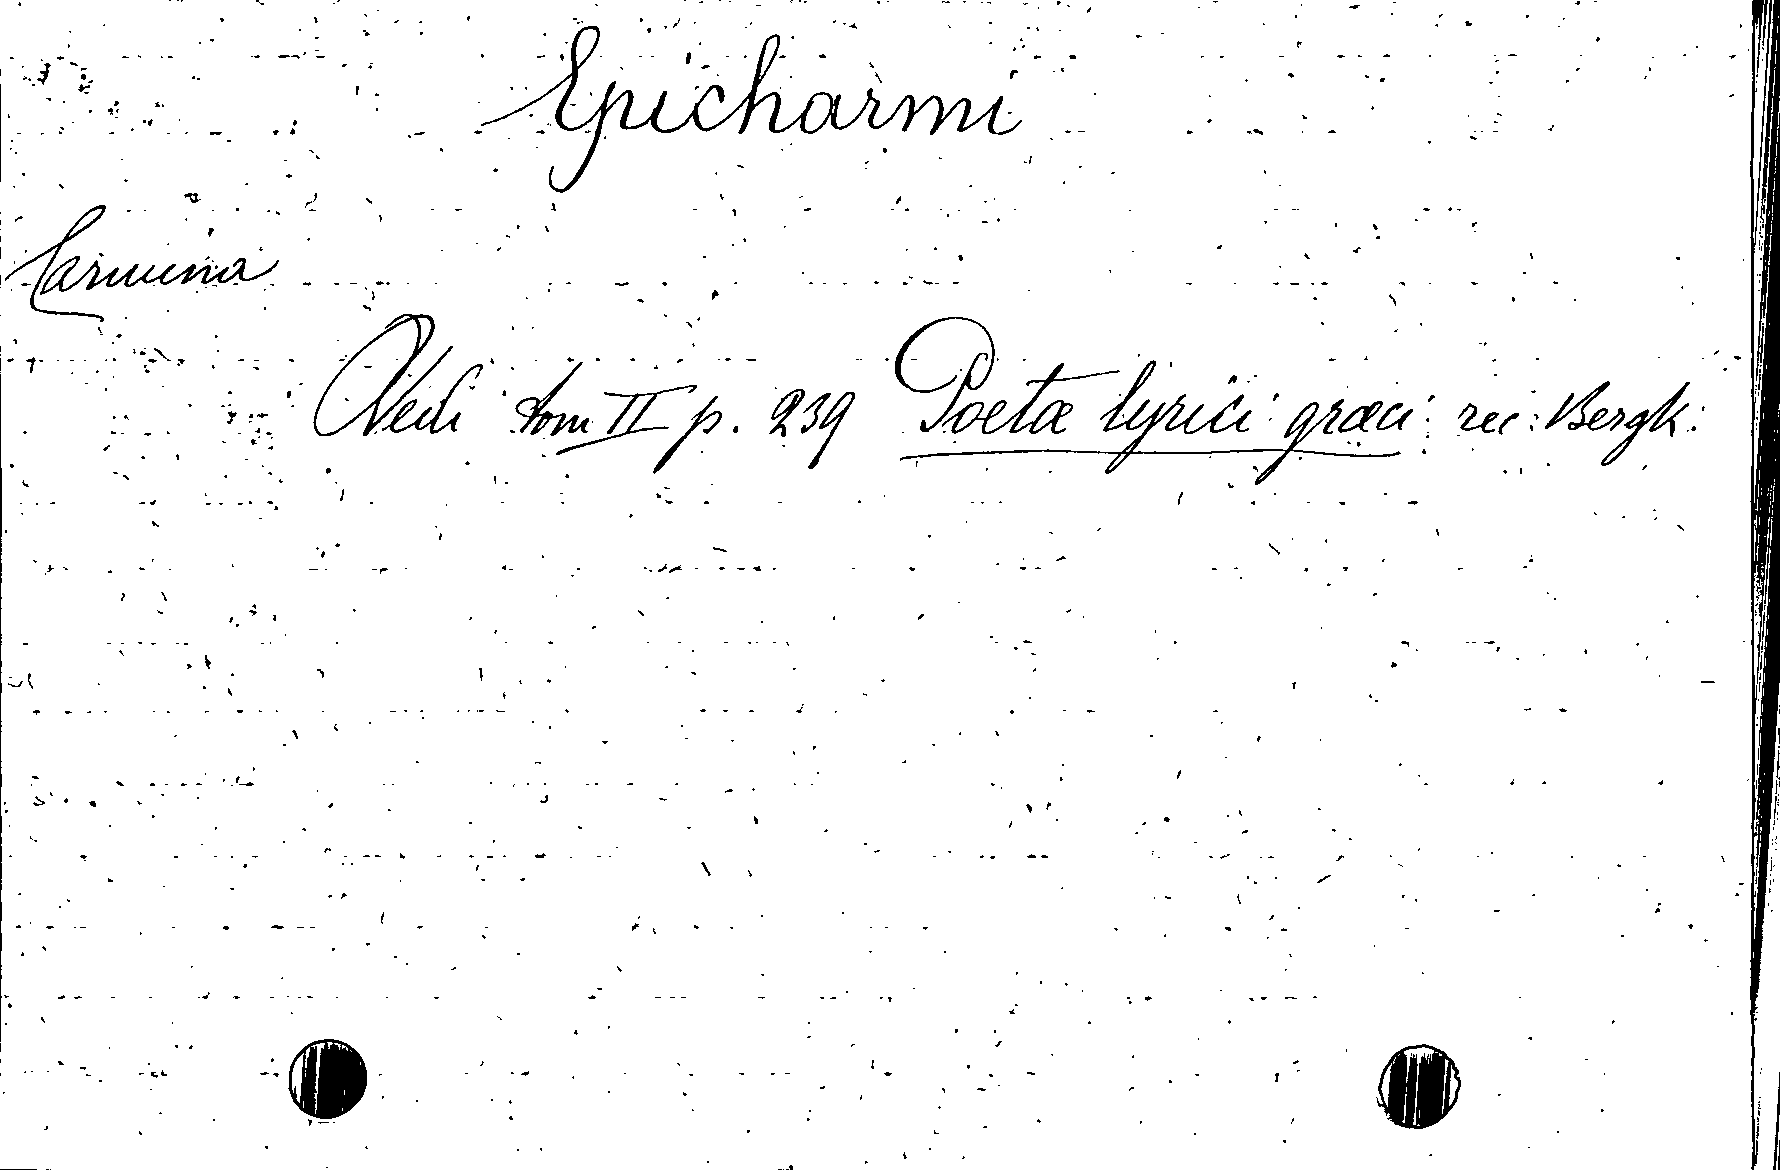 Epicharmi
Carmina
Vedi tom II p. 239 Poetæ lyrici græci rec: Bergk: